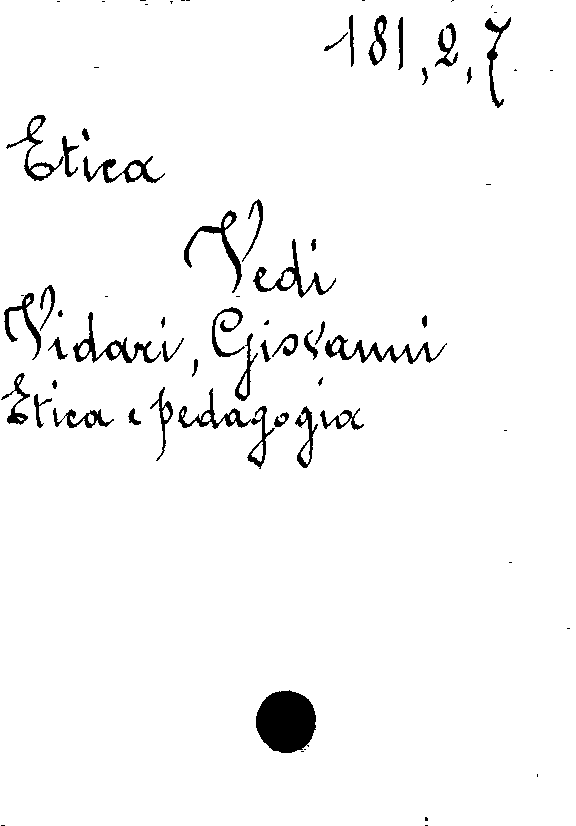 181,2,7
Etica
Vedi
Vidari, Giovanni
Etica e pedagogia